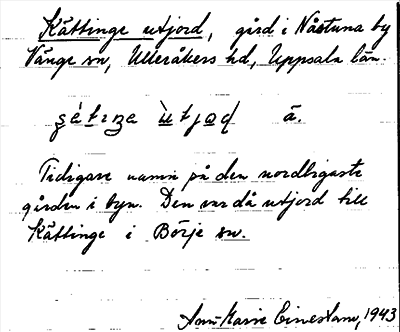 Kättinge utjord, gård i Nåstuna by
Vänge sn, Ulleråkers hd, Uppsala län.
ùtjoḍ ā.
Tidigare namn på den nordligaste
gården i byn. Den var då utjord till
Kättinge i Börje sn.
Ann-Marie Einestam, 1943